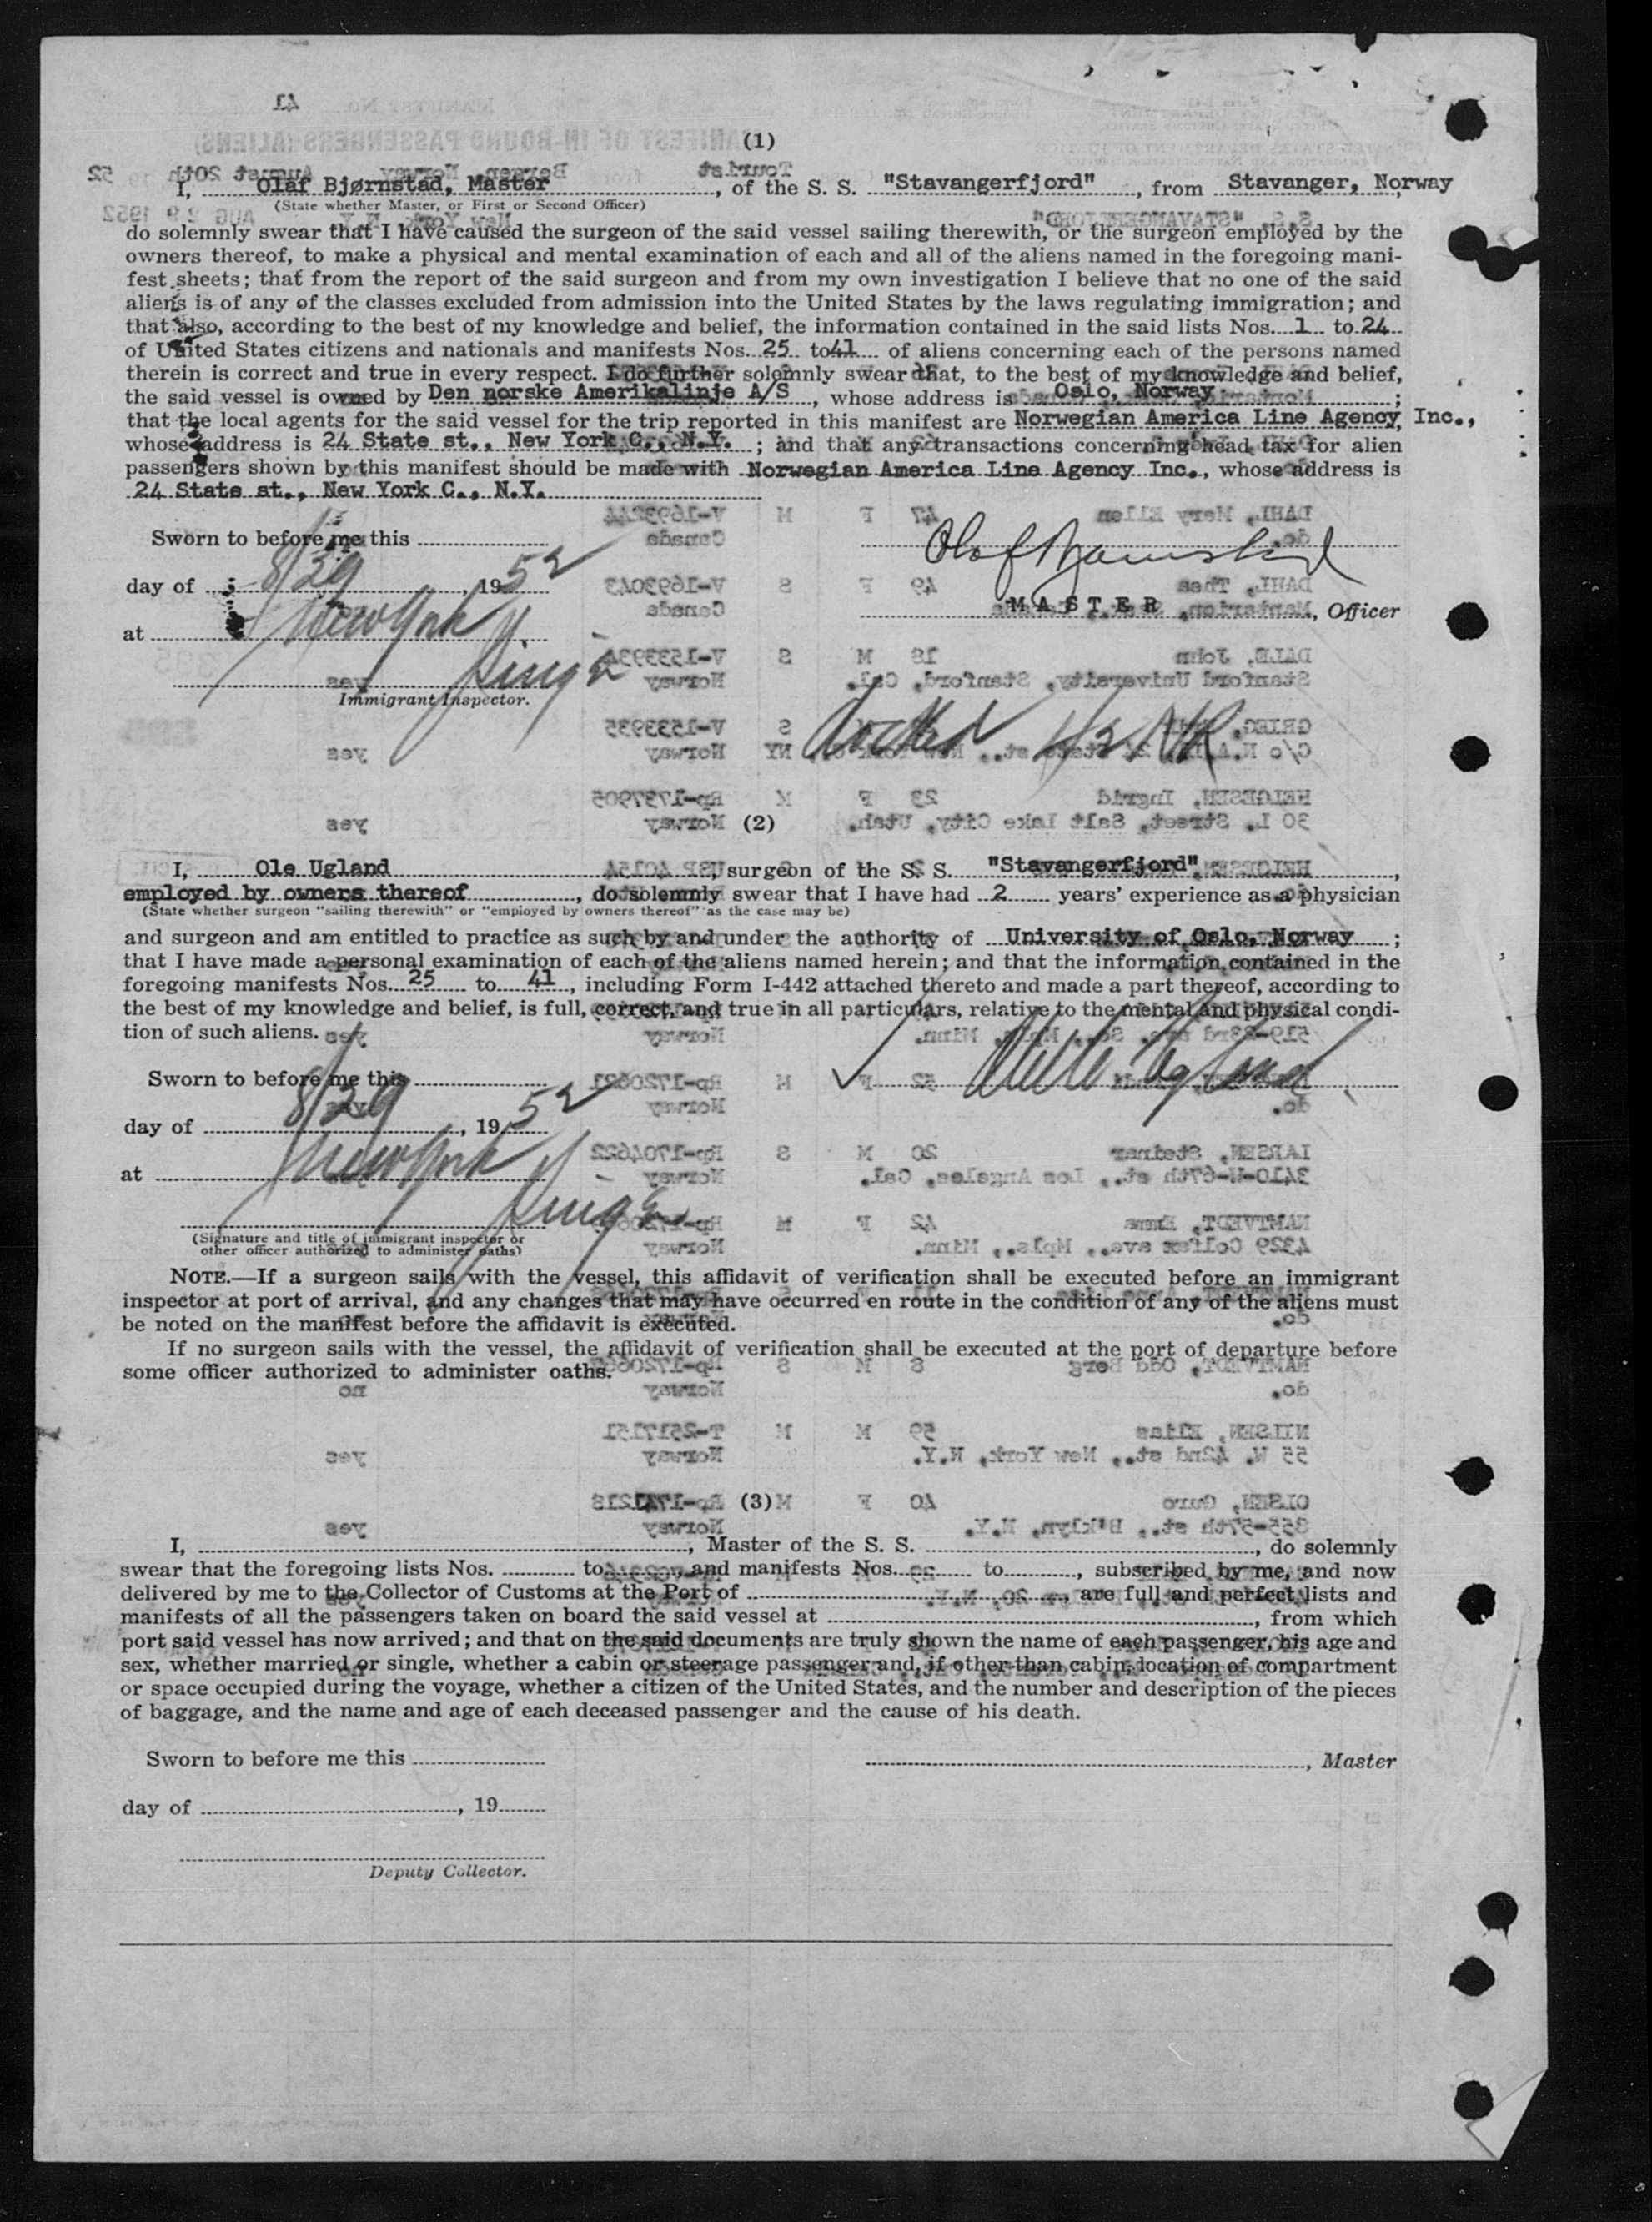 (1)
I, Olaf Bjørnstad, Master, of the S. S. "Stavangerfjord", from Stavanger, Norway,
(State whether Master, or First or Second Officer)
do solemnly swear that I have caused the surgeon of the said vessel sailing therewith, or the surgeon employed by the
owners thereof, to make a physical and mental examination of each and all of the aliens named in the foregoing mani-
fest sheets; that from the report of the said surgeon and from my own investigation I believe that no one of the said
aliens is of any of the classes excluded from admission into the United States by the laws regulating immigration; and
that also, according to the best of my knowledge and belief, the information contained in the said lists Nos. 1 to 24
of United States citizens and nationals and manifests Nos. 25 to 41 of aliens concerning each of the persons named
therein is correct and true in every respect. I do further solemnly swear that, to the best of my knowledge and belief,
the said vessel is owned by Den norske Amerikalinje A/S, whose address is Oslo, Norway;
that the local agents for the said vessel for the trip reported in this manifest are Norwegian America Line Agency, Inc.,
whose address is 24 State st., New York C., N.Y.; and that any transactions concerning head tax for alien
passengers shown by this manifest should be made with Norwegian America Line Agency Inc., whose address is
24 State st., New York C., N.Y.
Sworn to before me this
day of 8/29, 1952
at New York
Immigrant Inspector.
Olaf Bjørnstad
MASTER, Officer
Docked
(2)
I, Ole Ugland, surgeon of the S. S. "Stavangerfjord",
employed by owners thereof, do solemnly swear that I have had 2 years' experience as a physician
(State whether surgeon "sailing therewith" or "employed by owners thereof" as the case may be)
and surgeon and am entitled to practice as such by and under the authority of University of Oslo, Norway;
that I have made a personal examination of each of the aliens named herein; and that the information contained in the
foregoing manifests Nos. 25 to 41, including Form I-442 attached thereto and made a part thereof, according to
the best of my knowledge and belief, is full, correct, and true in all particulars, relative to the mental and physical condi-
tion of such aliens.
Sworn to before me this
day of 8/29, 1952
at New York
(Signature and title of immigrant inspector or
other officer authorized to administer oaths)
Ole Ugland
NOTE.—If a surgeon sails with the vessel, this affidavit of verification shall be executed before an immigrant
inspector at port of arrival, and any changes that may have occurred en route in the condition of any of the aliens must
be noted on the manifest before the affidavit is executed.
If no surgeon sails with the vessel, the affidavit of verification shall be executed at the port of departure before
some officer authorized to administer oaths.
(3)
I, , Master of the S. S. , do solemnly
swear that the foregoing lists Nos. to , and manifests Nos. to , subscribed by me, and now
delivered by me to the Collector of Customs at the Port of , are full and perfect lists and
manifests of all the passengers taken on board the said vessel at , from which
port said vessel has now arrived; and that on the said documents are truly shown the name of each passenger, his age and
sex, whether married or single, whether a cabin or steerage passenger and, if other than cabin, location of compartment
or space occupied during the voyage, whether a citizen of the United States, and the number and description of the pieces
of baggage, and the name and age of each deceased passenger and the cause of his death.
Sworn to before me this
day of , 19
Deputy Collector.
, Master